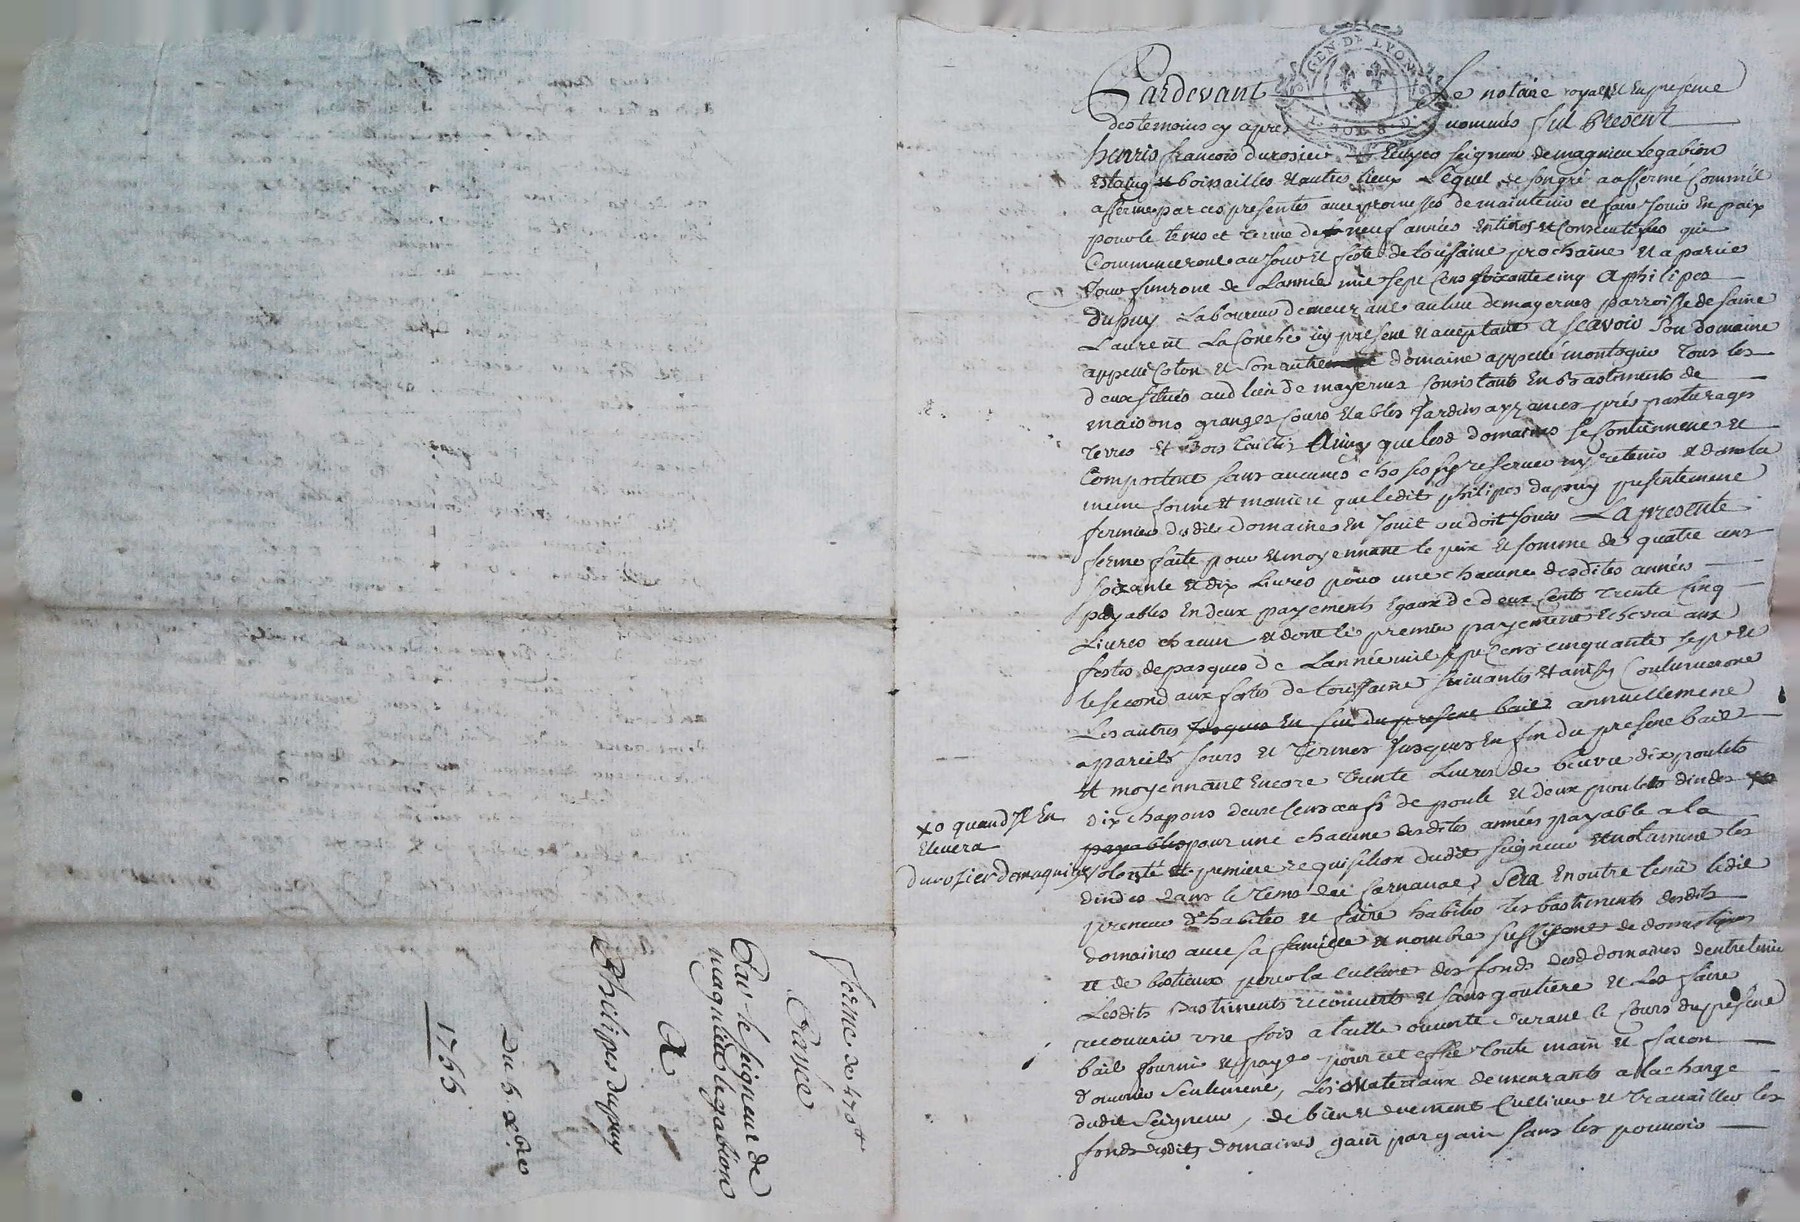 GEN DE LYON
SOLS
Pardevant Le notaire royal et en presence
des temoins cy apres nommes fut Present
henris francois durosier Ecuyer seigneur demagnieu Legabion
Estaing et boissailles et autres lieux Lequel de son gré a afferme Comme il
afferme par ces presentes avec promesses de maintenir et faire Jouir En paix
pour le tems et terme de neuf années Entieres et Consecutives qui
Commenceront au Jour et feste de toussaint prochaine et a pareil
Jour finiront de Lannée mil sept Cens soixante cinq A philipes
dupuy Laboureur demeurant au lieu demayernes parroisse de saint
Laurent La Conche icy present et acceptant A scavoir son domaine
appellé Coton et son autre domaine appellé montoguio tous les
deux situés aud lieu de mayernes Consistants En bastiments de
maisons granges Cours Etables Jardins ayzances prés pasturages
terres et bois taillis Ainsy que lesd domaines se Contiennent et
Comportent sans aucunes choses sy reserver ny retenir et dans la
meme forme et maniere que ledit philipes dupuy presentement
fermier desdits domaines En Jouit ou doit Jouir La presente
ferme faite pour et moyennant le prix et somme de quatre cens
soixante et dix Livres pour une chacune desdites années
payables En deux payements Egaux de deux Cents trente Cinq
Livres chacun et dont le premier payement Echevra aux
festes de pasques de Lannée mil sept Cens cinquante sept et
le second aux festes de toussaint suivantes et ainsy Continueront
Les autres Jusques En fin du present bail annuellement
a pareils Jours et termes Jusques En fin du present bail
et moyennant Encore trente Livres de beurre dix poulets
dix chapons deux Cens œufs de poule et deux poulets dindes
xo quand Il En
Elevera
durosier demagnieu
payables pour une chacune desdites années payable a la
volonté et premiere requisition dudit seigneur et notamment les
dindes dans le tems du Carnaval, Sera En outre tenu ledit
preneur d'habiter et faire habiter les bastiments desdits
domaines avec sa famille et nombre suffisant de domestiques
et de bestiaux pour la Culture des fonds desd domaines dentretenir
Lesdits bastiments recouverts et sans goutiere et Les faire
recouvrir une fois a taille ouverte durant le Cours du present
bail fournir et payer pour cet effet toute main et facon
douvrier seulement, Les Materiaux demeurants a la charge
dudit Seigneur, de bien et duement Cultiver et travailler les
fonds desdits domaines gain par gain sans les pouvoir
ferme de 470 tt
Passée
Par le seigneur de
magnieu legabion
A
Philipes dupuy
Du 5 xbre
1755